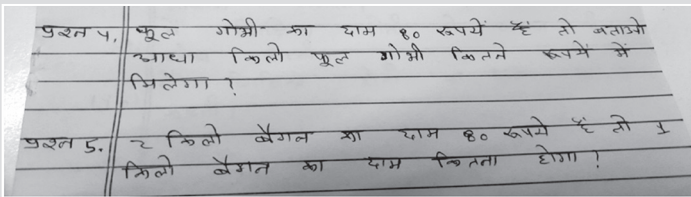 प्रश्न 4. फूल गोभी का दाम 80 रूपयें हैं तो बताओ
आधा किलो फूल गोभी कितने रूपयें में
मिलेगा ?
प्रश्न 5. 2 किलो बैगन का दाम 80 रूपये हैं तो 1
किलो बैगन का दाम कितना होगा ?